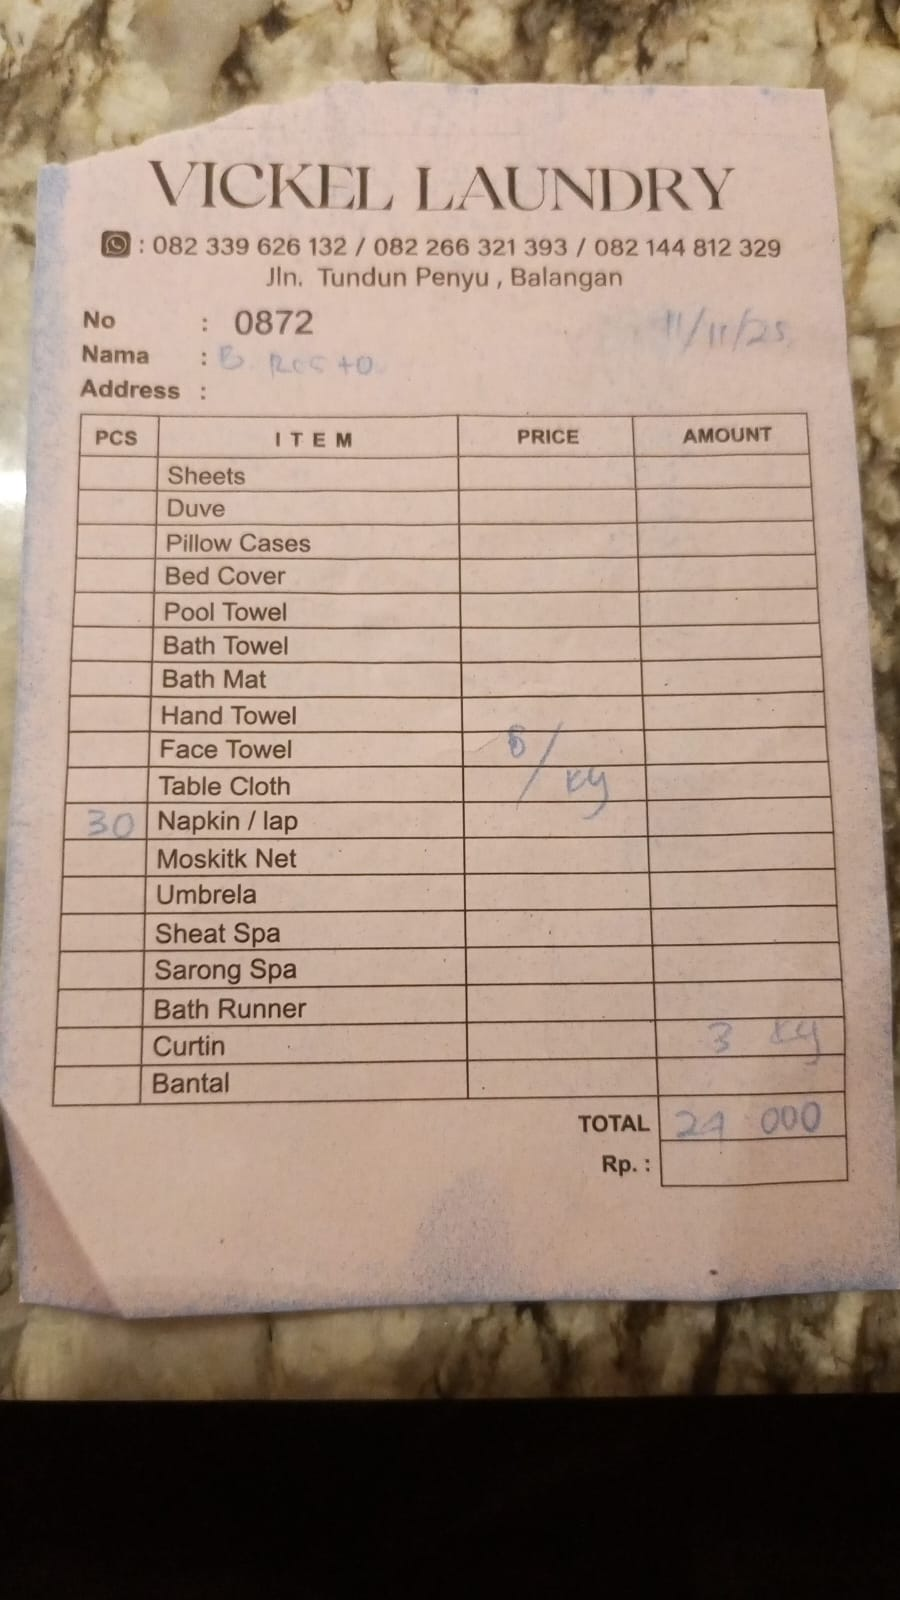 VICKEL LAUNDRY
: 082 339 626 132 / 082 266 321 393 / 082 144 812 329
Jln. Tundun Penyu , Balangan
No : 0872 11/11/25
Nama : B. Resto
Address :
PCS ITEM PRICE AMOUNT
Sheets
Duve
Pillow Cases
Bed Cover
Pool Towel
Bath Towel
Bath Mat
Hand Towel
Face Towel 8/kg
Table Cloth
30 Napkin / lap
Moskitk Net
Umbrela
Sheat Spa
Sarong Spa
Bath Runner
Curtin 3 kg
Bantal
TOTAL 24 000
Rp. :